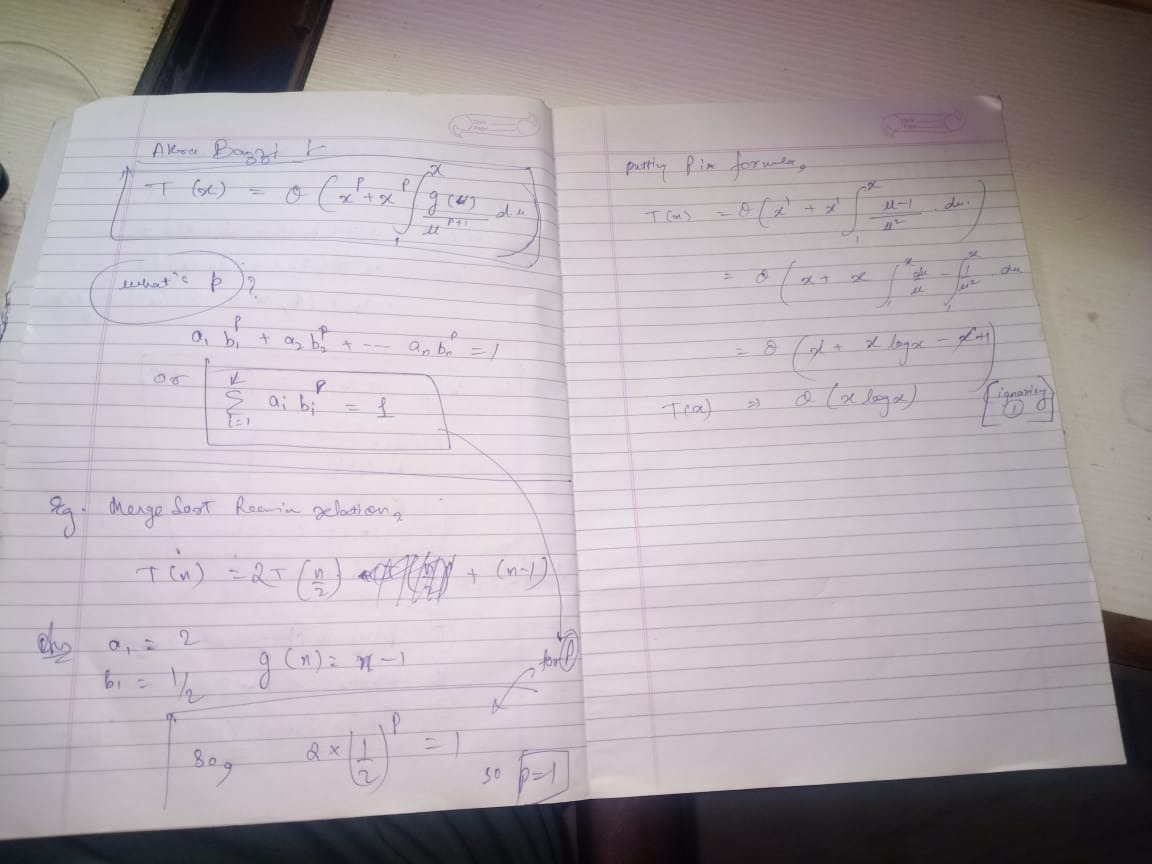 Akra Bazzi :-
T(x) = θ(x^p + x^p ∫_1^x g(u)/u^(p+1) du)
what's p ?
a₁ b₁^p + a₂ b₂^p + --- aₙ bₙ^p = 1
or
∑_{i=1}^k aᵢ bᵢ^p = 1
Eg. Merge Sort relation,
T(n) = 2T(n/2) + (n-1)
a₁ = 2
b₁ = 1/2
g(n) = n-1
for P
So, 2 × (1/2)^p = 1
so p=1
putting P in formula,
T(n) = θ(x' + x' ∫_1^x (u-1)/u² . du)
= θ(x + x ∫_1^x du/u - ∫_1^x 1/u² . du)
= θ(x + x log x - x+1)
T(x) ⇒ θ(x log x) [ignoring 1]